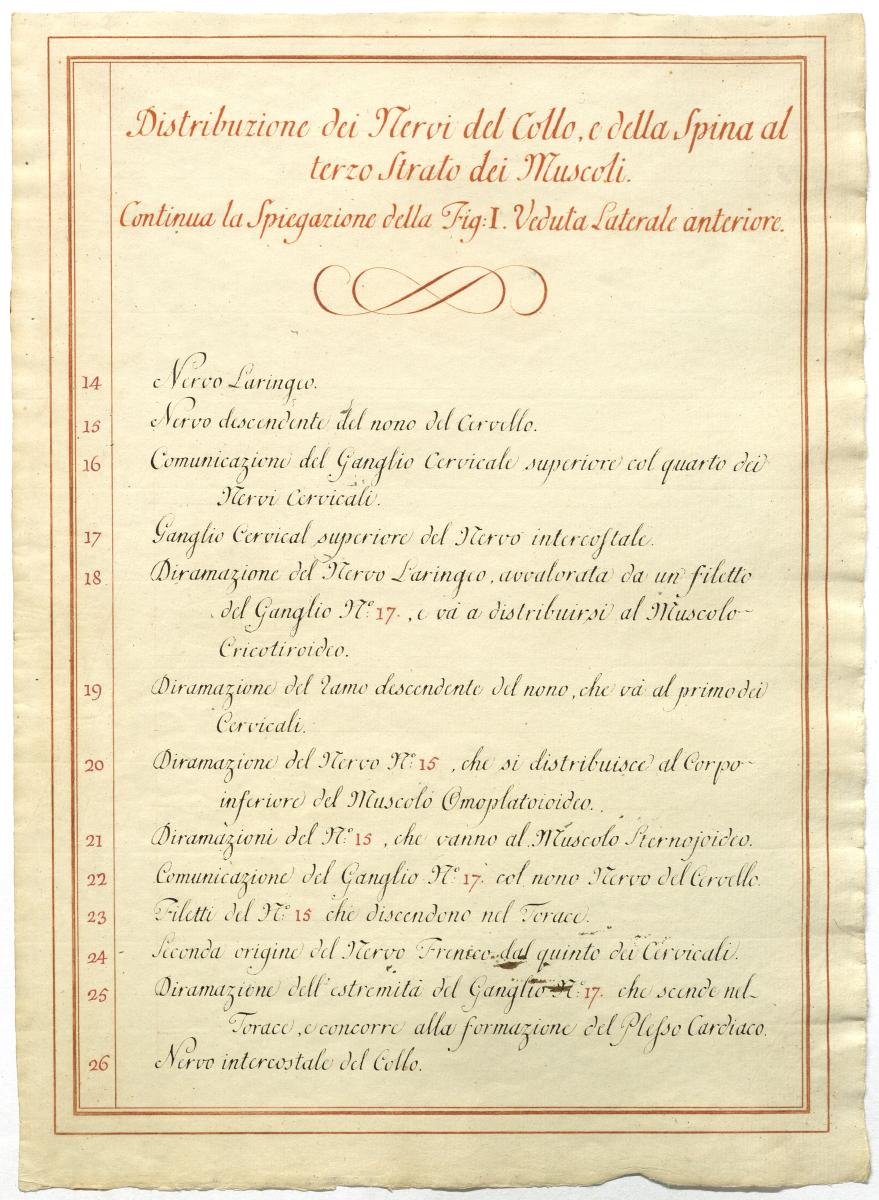 Distribuzione dei Nervi del Collo, e della Spina al
terzo Strato dei Muscoli.
Continua la Spiegazione della Fig: I. Veduta Laterale anteriore.
14 Nervo Laringeo.
15 Nervo descendente del nono del Cervello.
16 Comunicazione del Ganglio Cervicale superiore col quarto dei
Nervi Cervicali.
17 Ganglio Cervical superiore del Nervo intercoſtale.
18 Diramazione del Nervo Laringeo, avvalorata da un filetto
del Ganglio N.º 17., e vá a distribuirsi al Muscolo
Cricotiroideo.
19 Diramazione del ramo descendente del nono, che vá al primo dei
Cervicali.
20 Diramazione del Nervo N.º 15, che si distribuisce al Corpo
inferiore del Muscolo Omoplatoioideo.
21 Diramazioni del N.º 15, che vanno al Muscolo Sternojoideo.
22 Comunicazione del Ganglio N.º 17. col nono Nervo del Cervello.
23 Filetti del N.º 15 che discendono nel Torace.
24 Seconda origine del Nervo Frenico dal quinto dei Cervicali.
25 Diramazione dell'estremitá del Ganglio N.º 17. che scende nel
Torace, e concorre alla formazione del Pleſso Cardiaco.
26 Nervo intercostale del Collo.